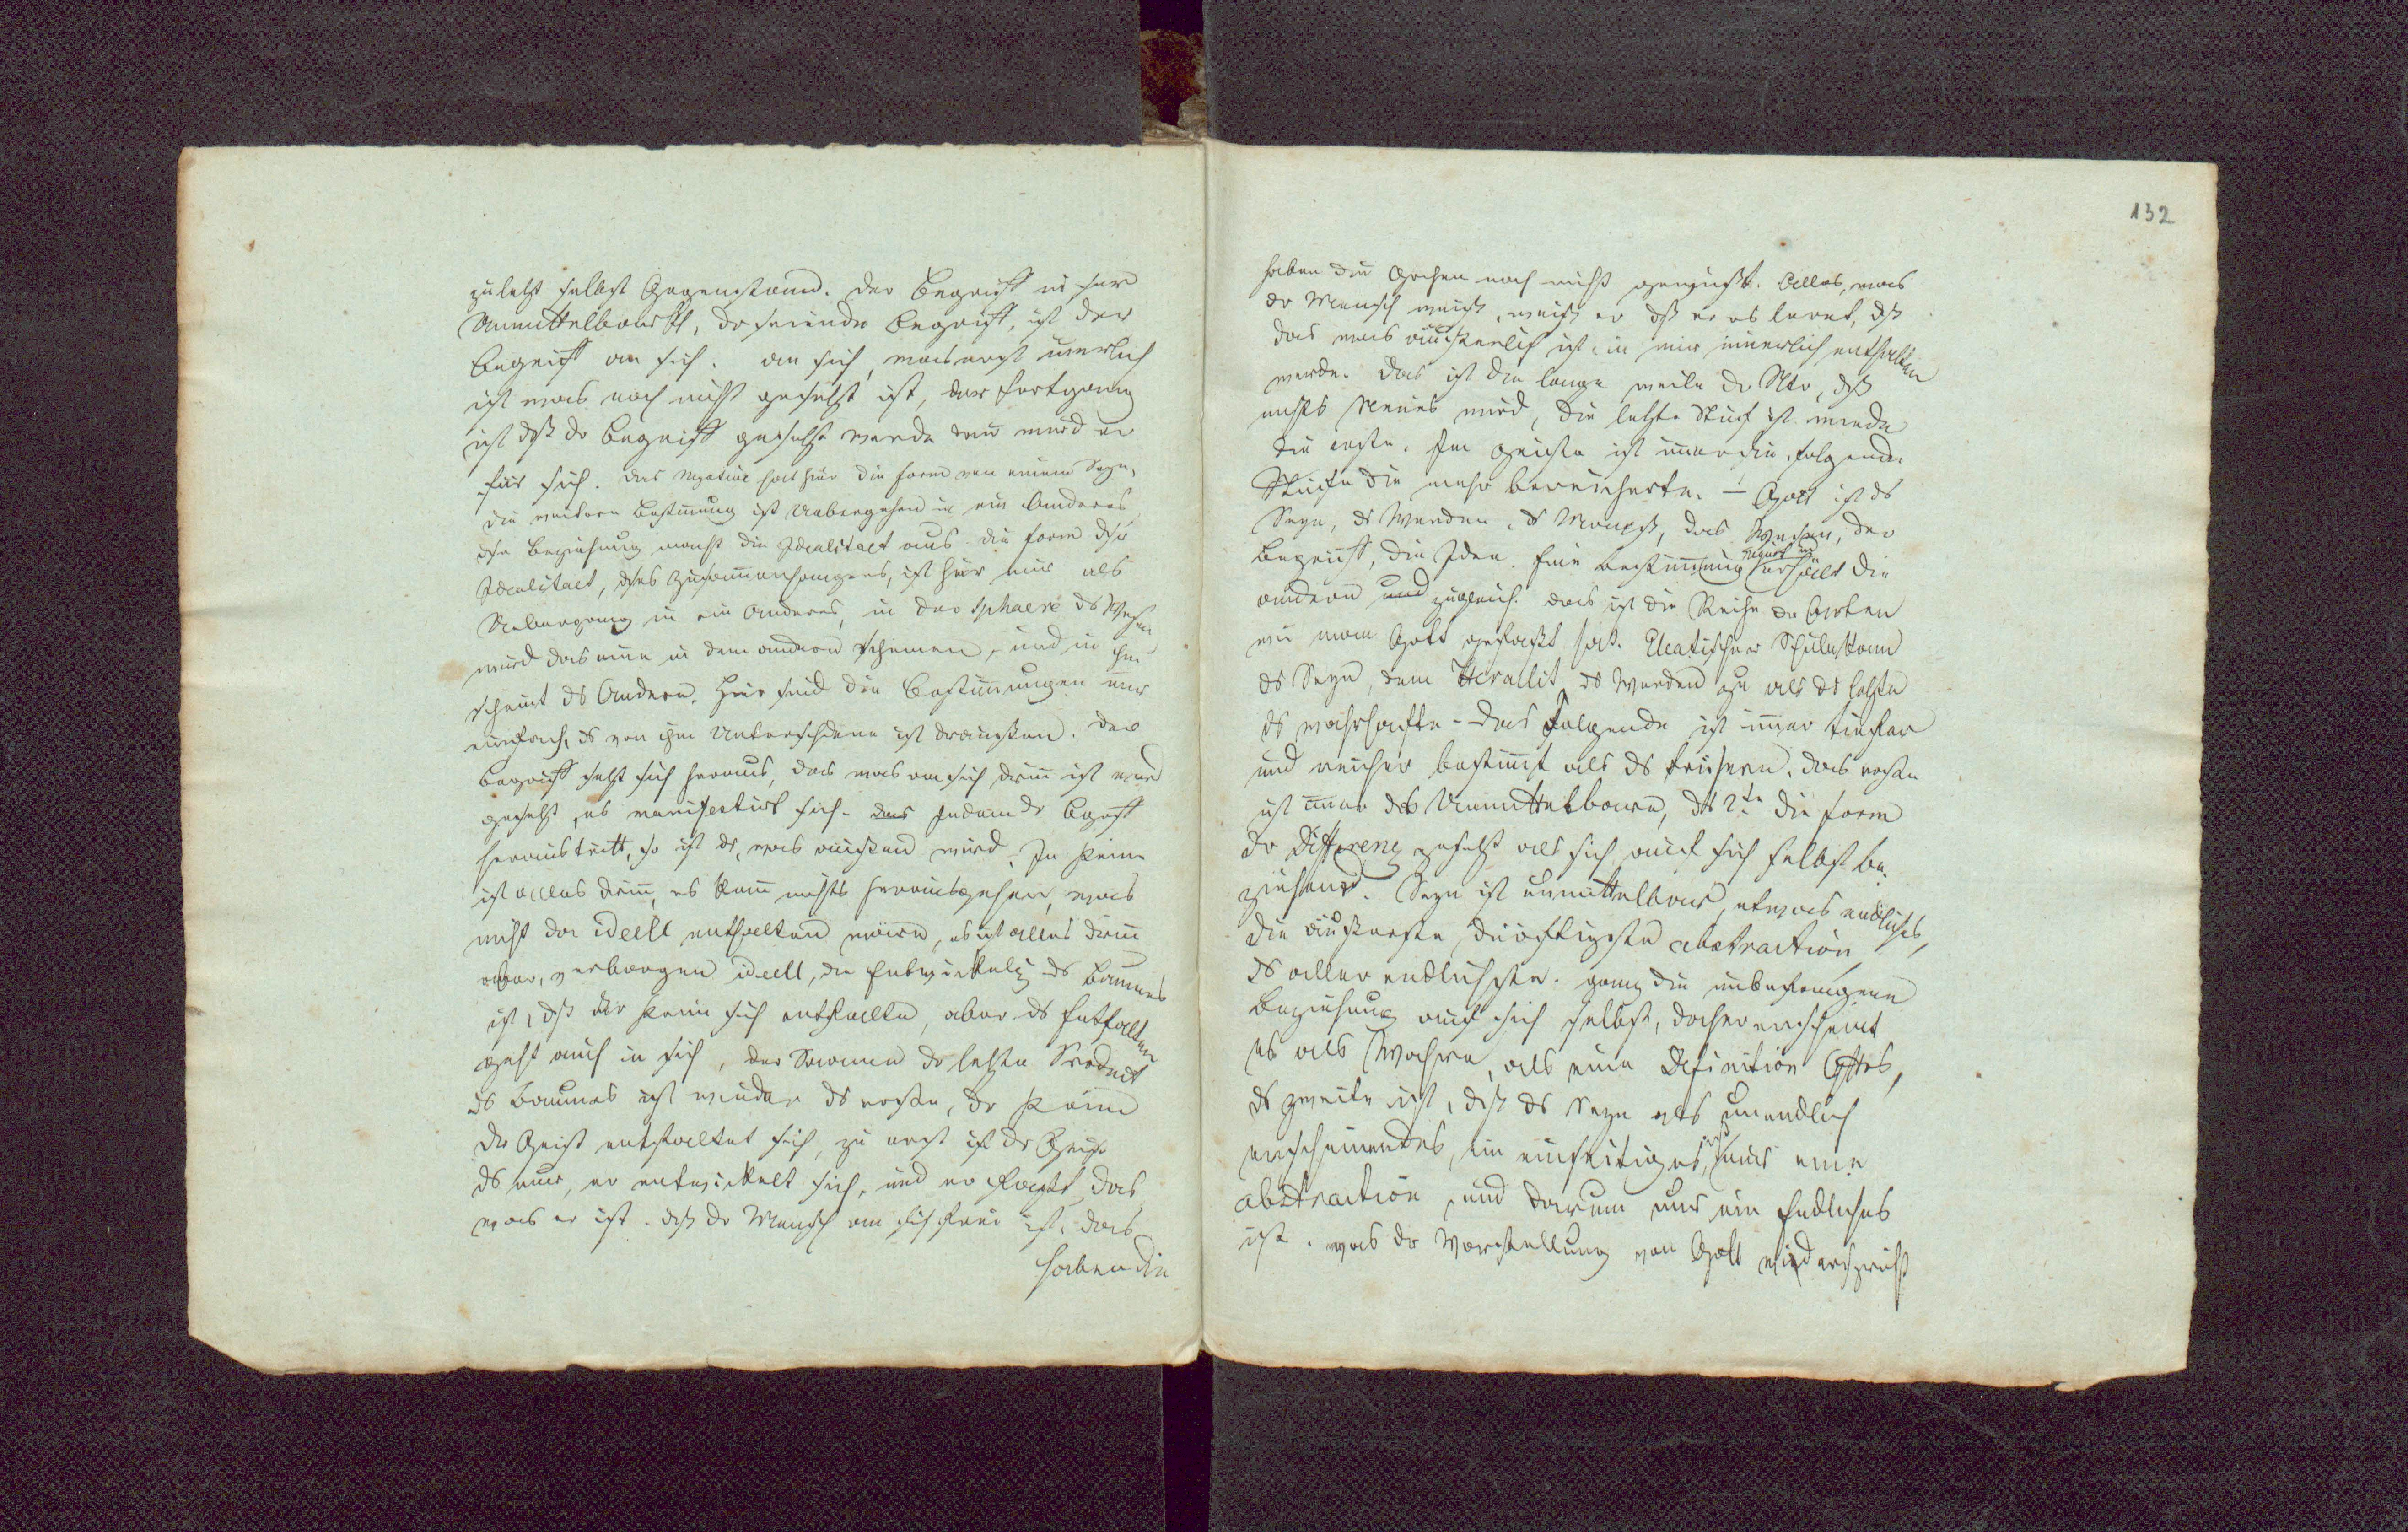 zuletzt selbst Gegenstand. Der Begriff in sr
Unmittelbarkt, dr seiende Begriff, ist der
Begriff an sich. an sich, was erst innerlich
ist was noch nicht gesetzt ist, der Fortgang
ist dß dr Begriff gesetzt werde wird er
für sich. Das Negative hat hier die Form von einem Seyn,
die weitere Bestimung ist Uebergehen in ein Anderes
dse Beziehung macht die Idealitaet aus. die Form dsr
Idealitaet, dses Zusamenhanges, ist hier nur als
Uebergang in ein Anderes, in der Sphaere ds Wesen
wird das eine in dem andern scheinen, und in ihm
scheint ds Andere. Hier sind die Bestimungen nur
einfach, ds von ihm Unterschiedene ist draussen. Der
Begriff setzt sich heraus, das was an sich drin ist wird
gesetzt, es manifestirt sich. das Indem dr Bgriff
heraustritt, so ist ds, was aussen wird. Im Keime
ist alles drin, es kann nichts herausgehen, was
nicht da ideell enthalten wäre, es ist alles drin
aber, verborgen ideell, die Entwickelg ds Baumes
ist, dß der Keim sich entfalte, aber ds Entfalten
geht auch in sich, der Saamen dr letzte Product
ds Baumes ist wieder ds erste, dr Keim
Dr Geist entfaltet sich, zu erst ist dr Geist
ds nur, er entwickelt sich, und er fasst das
was er ist. dß dr Mensch an sich frei ist, das
haben die
132
haben die Griechen noch nicht gewusst. Alles, was
dr Mensch weiß, weiß er dß er es lernt, dß
das was äusserlich ist, in mir innerlich enthalten
werde. Das ist die lange weile dr Ntr, dß
nichts Neues wird, die letzte Stufe ist wieder
die erste. Im Geiste ist imer die folgende
Stufe die mehr bereicherte. – Gott ist ds
Seyn, ds Werden, ds Maaß, das Wesen, der
Begriff, die Idee. Eine Bestimung erhält die
andern und zugleich. das ist die Reihe dr Arten
wie man Gott gefasst hat. Eleatischer Schule kam
ds Seyn, dem Heraklit ds Werden zu als ds letzte
ds wahrhafte – das Folgende ist imer tiefer
und reicher bestimt als ds frühere. das erste
ist imer das Unmittelbare, ds 2te die Form
dr Differenz gesetzt als sich auf sich selbst be-
ziehend. Seyn ist unmittelbar, etwas endliches,
die äusserste, dürftigste abstraction,
ds aller endlichste. ganz die unbefangene
Beziehung auf sich selbst, daher erscheint
es als Wahre, als eine Definition Gottes,
ds zweite ist, dß ds Seyn als unendlich
erscheinendes, ein einseitiges, nur eine
abstraction, und darum nur ein Endliches
ist. was dr Vorstellung von Gott widerspricht